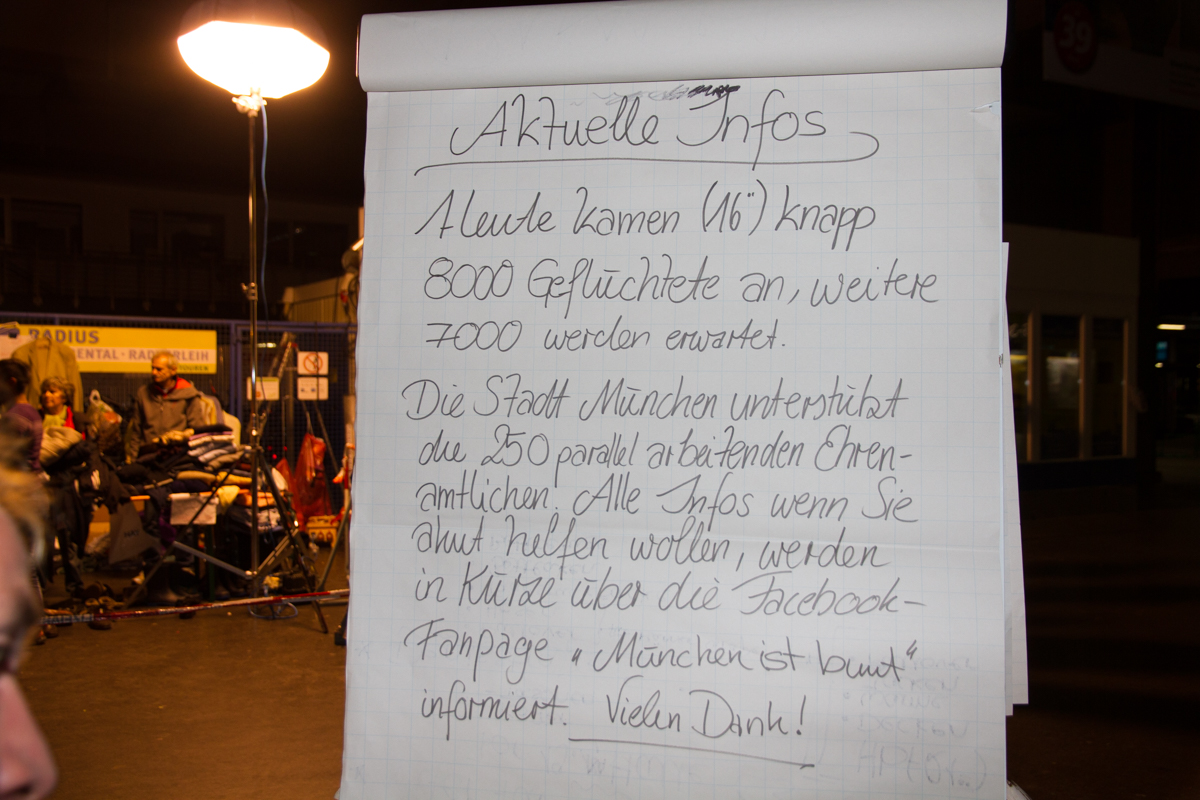 Aktuelle Infos
Heute kamen (16°°) knapp
8000 Geflüchtete an, weitere
7000 werden erwartet.
Die Stadt München unterstützt
die 250 parallel arbeitenden Ehren-
amtlichen. Alle Infos wenn Sie
akut helfen wollen, werden
in Kürze über die Facebook-
Fanpage „München ist bunt“
informiert. Vielen Dank!
RADIUS
ENTAL · RAD
RLEIH
39